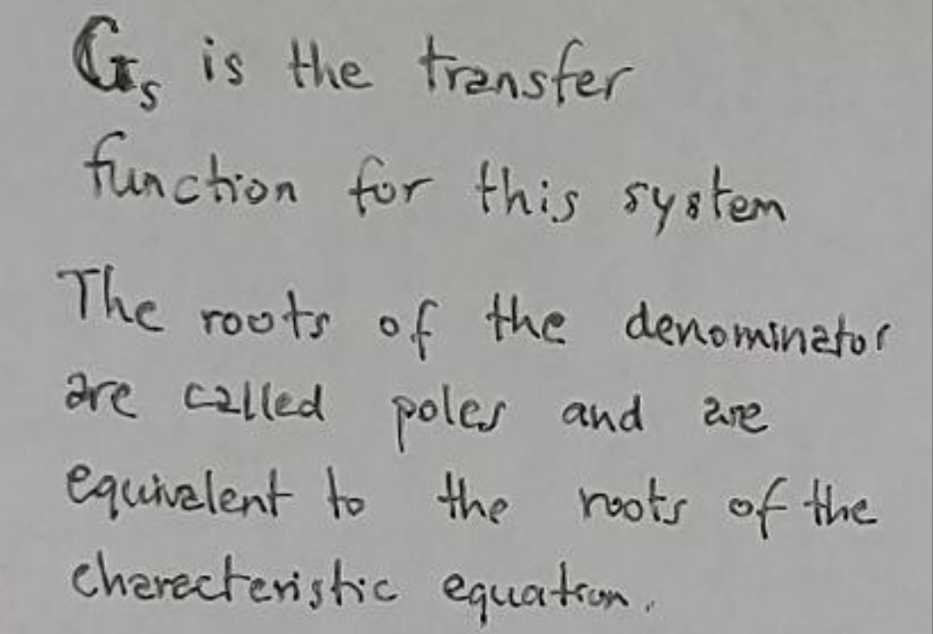 Gs is the transfer
function for this system
The roots of the denominator
are called poles and are
equivalent to the roots of the
characteristic equation.